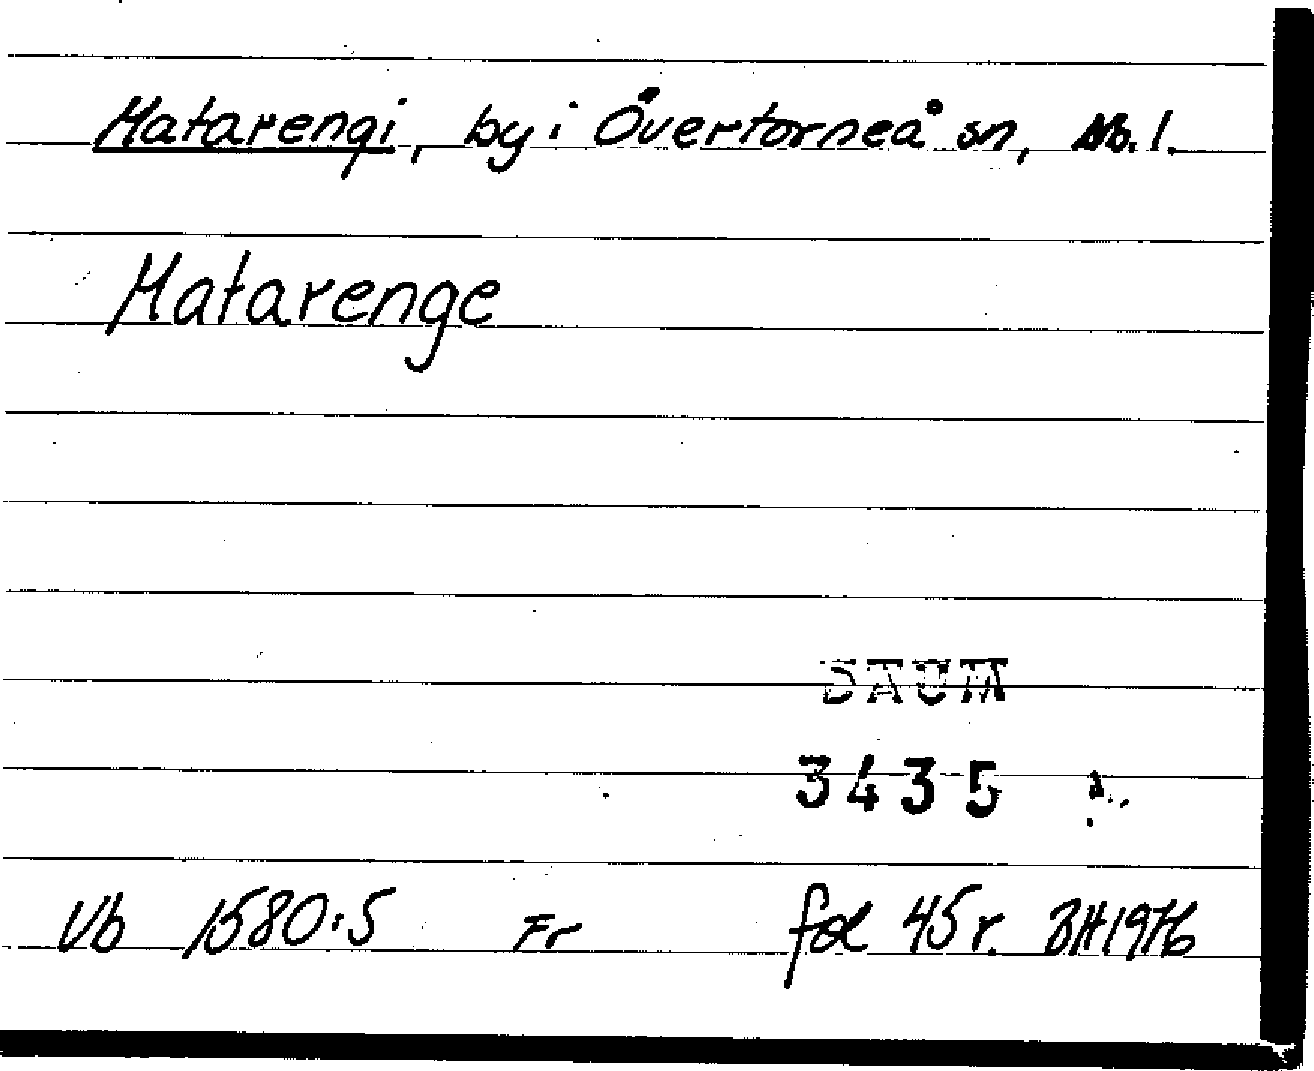 Matarengi, by i Övertorneå sn, Nb. l.
Matarenge
DAUM
3435
Vb 1580:5 Fr fol 45 r. BH 1976